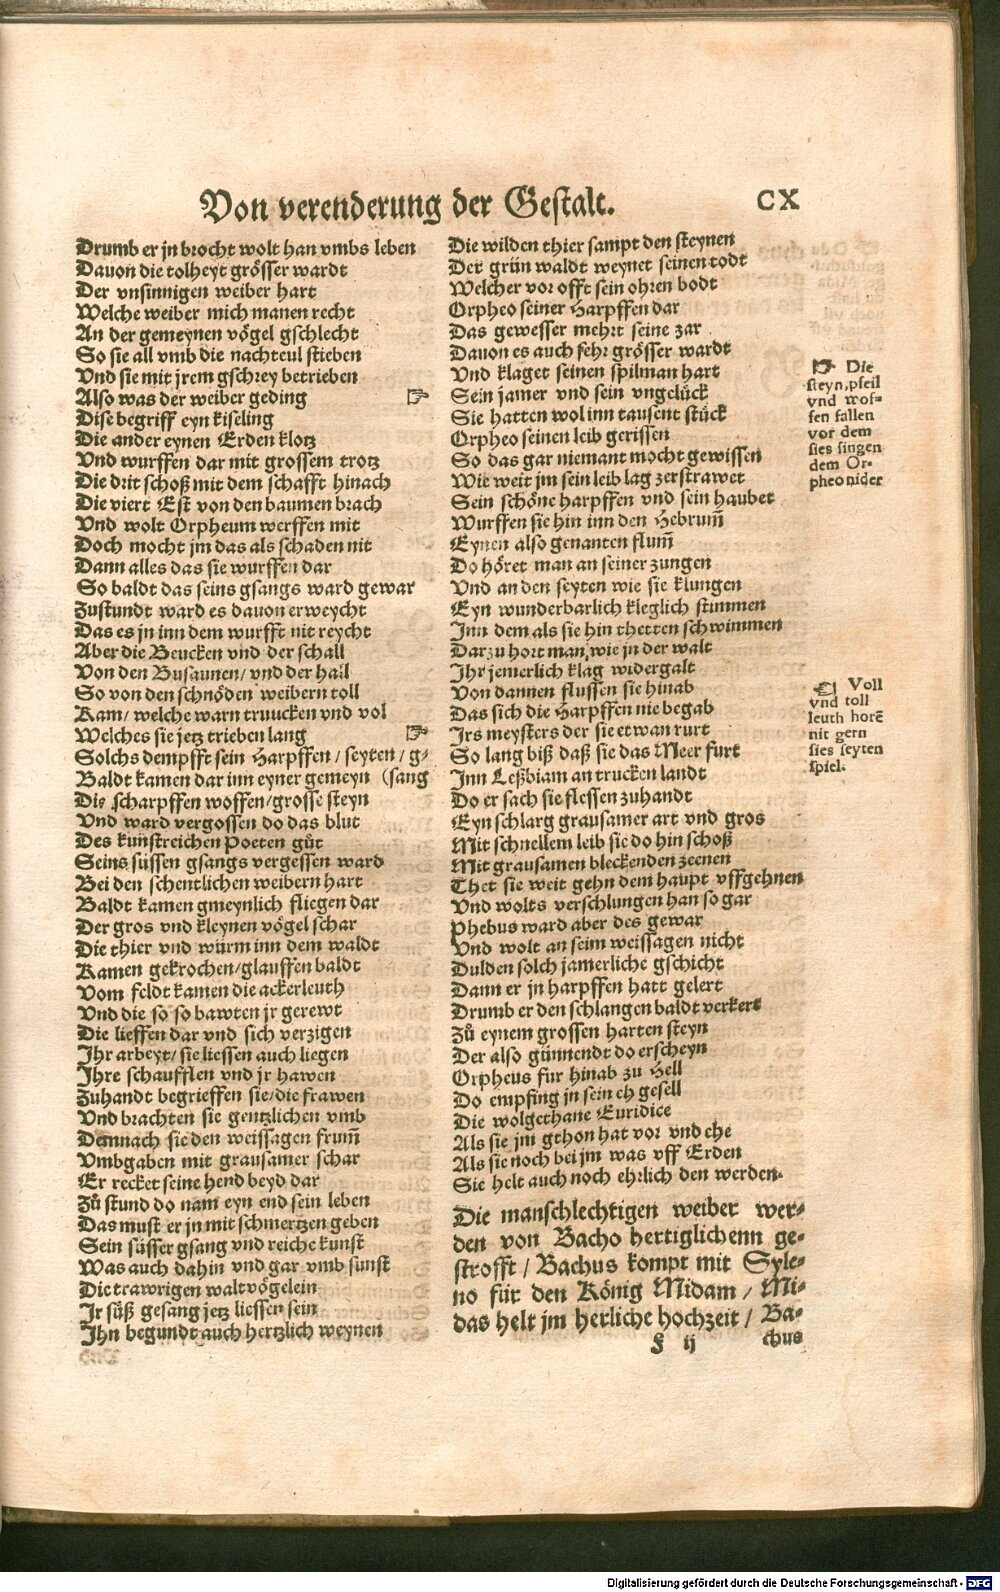 Von verenderung der Gestalt.
CX
Drumb er jn brocht wolt han vmbs leben
Dauon die tolheyt grösser wardt
Der vnsinnigen weiber hart
Welche weiber mich manen recht
An der gemeynen vögel gschlecht
So sie all vmb die nachteul stieben
Vnd sie mit jrem gschrey betrieben
Also was der weiber geding ☞
Dise begriff eyn kiseling
Die ander eynen Erden klotz
Vnd wurffen dar mit grossem trotz
Die drit schoß mit dem schafft hinach
Die viert Est von den baumen brach
Vnd wolt Orpheum werffen mit
Doch mocht jm das als schaden nit
Dann alles das sie wurffen dar
So baldt das seins gsangs ward gewar
Zustundt ward es dauon erweycht
Das es jn inn dem wurfft nit reycht
Aber die Beucken vnd der schall
Von den Busaunen/ vnd der hall
So von den schnöden weibern toll
Kam/ welche warn truncken vnd vol
Welches sie jetz trieben lang ☞
Solchs dempfft sein Harpffen/ seyten/ g-
Baldt kamen dar inn eyner gemeyn (sang
Die scharpffen woffen/grosse steyn
Vnd ward vergossen do das blut
Des kunstreichen Poeten gůt
Seins süssen gsangs vergessen ward
Bei den schentlichen weibern hart
Baldt kamen gmeynlich fliegen dar
Der gros vnd kleynen vögel schar
Die thier vnd würm inn dem waldt
Kamen gekrochen/glauffen baldt
Vom feldt kamen die ackerleuth
Vnd die so so bawten jr gerewt
Die lieffen dar vnd sich verzigen
Ihr arbeyt/ sie liessen auch liegen
Ihre schaufflen vnd jr hawen
Zuhandt begrieffen sie/die frawen
Vnd brachten sie gentzlichen vmb
Demnach sie den weissagen frum̃
Vmbgaben mit grausamer schar
Er recket seine hend beyd dar
Zů stund do nam eyn end sein leben
Das must er jn mit schmertzen geben
Sein süsser gsang vnd reiche kunst
Was auch dahin vnd gar vmb sunst
Die trawrigen walt vögelein
Ir süß gesang jetz liessen sein
Ihn begundt auch hertzlich weynen
Die wilden thier sampt den steynen
Der grün waldt weynet seinen todt
Welcher vor offt sein ohren bodt
Orpheo seiner Harpffen dar
Das gewesser mehrt seine zar
Dauon es auch sehr grösser wardt
Vnd klaget seinen spilman hart
Sein jamer vnd sein vngelück
Sie hatten wol inn tausent stück
Orpheo seinen leib gerissen
So das gar niemant mocht gewissen
Wie weit jm sein leib lag zerstrawet
Sein schöne harpffen vnd sein haubet
Wurffen sie hin inn den Hebrum̃
Eynen also genanten flum̃
Do höret man an seiner zungen
Vnd an den seyten wie sie klungen
Eyn wunderbarlich kleglich stimmen
Inn dem als sie hin thetten schwimmen
Darzu hort man, wie jn der walt
Ihr jemerlich klag widergalt
Von dannen flussen sie hinab
Das sich die Harpffen nie begab
Irs meysters der sie etwan rurt
So lang biß daß sie das Meer furt
Inn Leßbiam an trucken landt
Do er sach sie flessen zuhandt
Eyn schlang grausamer art vnd gros
Mit schnellem leib sie do hin schoß
Mit grausamen bleckenden zeenen
Thet sie weit gehn dem haupt vffgehnen
Vnd wolts verschlungen han so gar
Phebus ward aber des gewar
Vnd wolt an seim weissagen nicht
Dulden solch jamerliche gschicht
Dann er jn harpffen hatt gelert
Drumb er den schlangen baldt verkert
Zů eynem grossen harten steyn
Der also günnendt do erscheyn
Orpheus fur hinab zu Hell
Do empfing jn sein eh gesell
Die wolgethane Euridice
Als sie jm gthon hat vor vnd ehe
Als sie noch bei jm was vff Erden
Sie helt auch noch ehrlich den werden.
Die manschlechtigen weiber wer-
den von Bacho hertiglichenn ge-
strofft/ Bachus kompt mit Syle-
no für den König Midam/ Mi-
das helt jm herliche hochzeit/ Ba-
chus
ij
☞ Die
steyn, pfeil
vnd wof-
fen fallen
vor dem
sies singen
dem Or-
pheo nider
☜ Voll
vnd toll
leuth horẽ
nit gern
sies seyten
spiel.
Digitalisierung gefördert durch die Deutsche Forschungsgemeinschaft - DFG